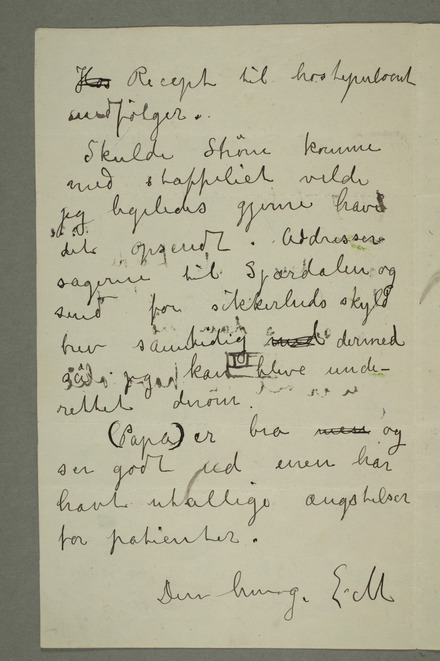 Recept til hostepulvert
medfølger.
Skulde Strøm komme
med staffeliet vilde
jeg ligeledes gjerne have
det opsendt. Addresser
sagerne til Gjærdalen og
send for sikkerheds skyld
brev samtidig dermed
så jeg kan blive unde-
rettet derom.
(Papa) er bra og
ser godt ud men har
havt utallige ængstelser
for patienter.
Din hengg. E. M